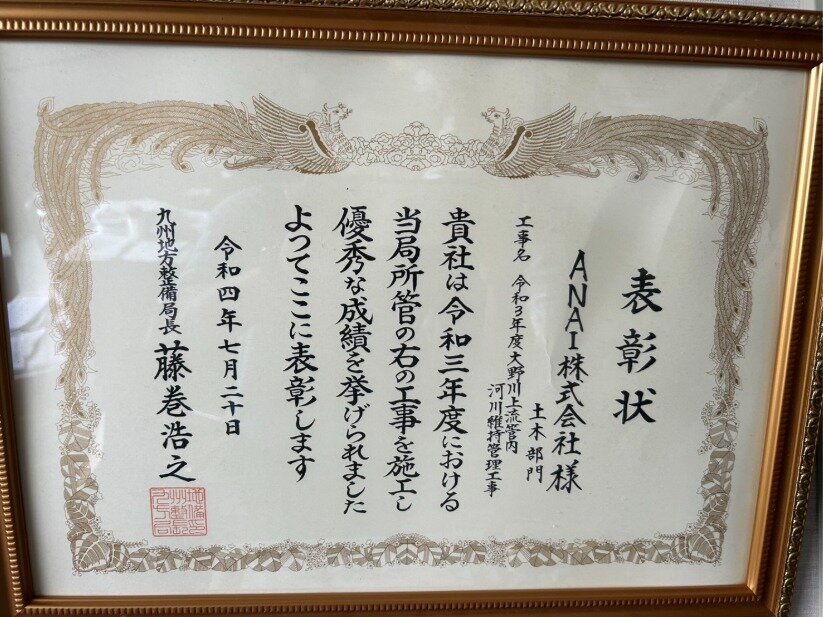 表彰状
ANAI株式会社様
土木部門
工事名 令和3年度大野川上流管内
河川維持管理工事
貴社は令和三年度における
当局所管の右の工事を施工し
優秀な成績を挙げられました
よってここに表彰します
令和四年七月二十日
九州地方整備局長 藤巻浩之